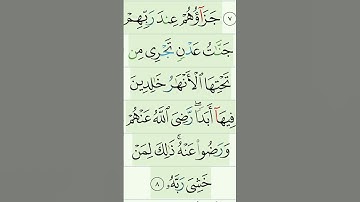 ٧ جَزَآؤُهُمْ عِندَ رَبِّهِمْ
جَنَّـٰتُ عَدْنٍ تَجْرِى مِن
تَحْتِهَا ٱلْأَنْهَـٰرُ خَـٰلِدِينَ
فِيهَآ أَبَدًا ۖ رَّضِىَ ٱللَّهُ عَنْهُمْ
وَرَضُوا۟ عَنْهُ ۚ ذَٰلِكَ لِمَنْ
خَشِىَ رَبَّهُۥ ٨